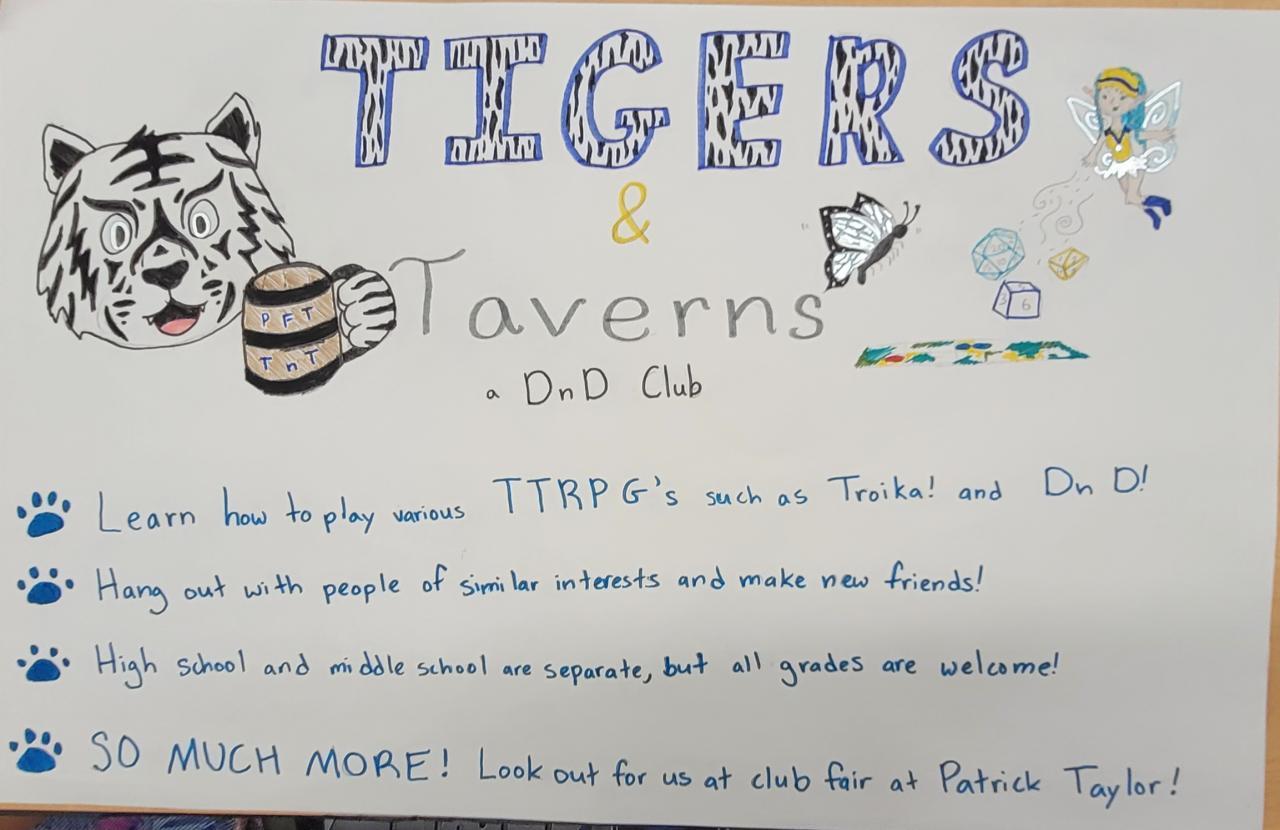 TIGERS
&
Taverns
a DnD Club
PFT
TnT
3 6
Learn how to play various TTRPG's such as Troika! and DnD!
Hang out with people of similar interests and make new friends!
High school and middle school are separate, but all grades are welcome!
SO MUCH MORE! Look out for us at club fair at Patrick Taylor!